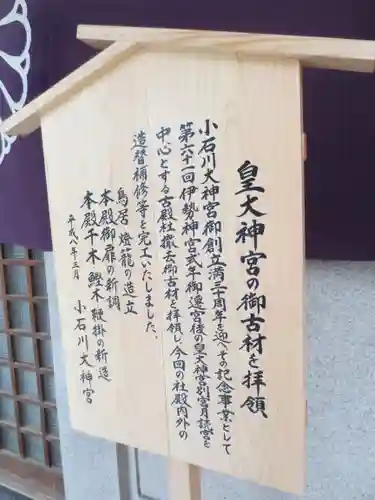 皇大神宮の御古材を拝領
小石川大神宮御創立満三十周年を迎へその記念事業として
第六十一回伊勢神宮式年御遷宮後の皇大神宮別宮月読宮を
中心とする古殿社撤去御古材を拝領し今回の社殿内外の
造替補修等を完工いたしました、
鳥居 燈籠の造立
本殿御扉の新調
本殿千木 鰹木 鞭掛の新造
平成八年三月 小石川大神宮